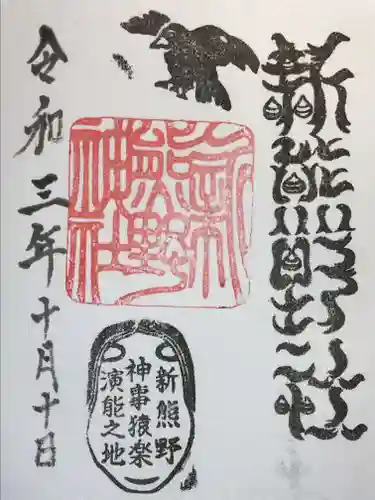 新熊野神社
新熊野神社
新熊野
神事猿楽
演能之地
令和三年十月十日